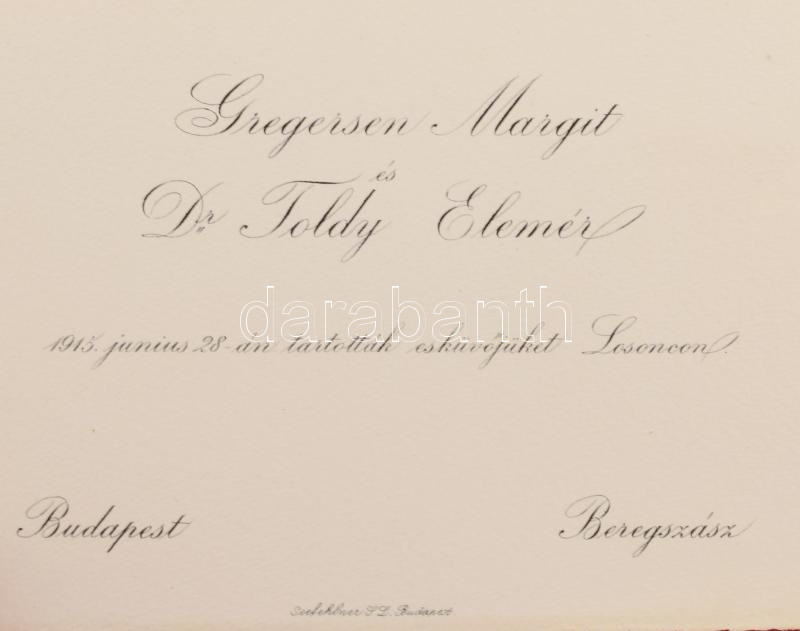 Gregersen Margit
és
Dr Toldy Elemér
darabanth
1915. junius 28-án tartották esküvőjüket Losoncon.
Budapest Beregszász
Seefehlner S L. Budapest.